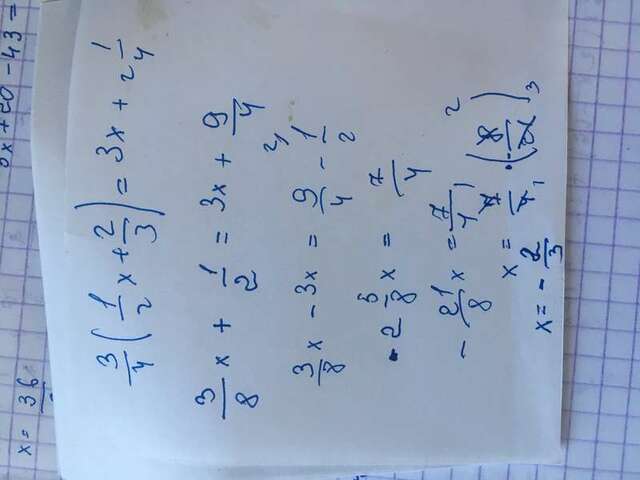 x = 36
x + 20 - 43 =
3/4 ( 1/2 x + 2/3 ) = 3x + 2 1/4
3/8 x + 1/2 = 3x + 9/4
3/8 x - 3x = 9/4 - 1/2
- 2 5/8 x = 7/4
- 21/8 x = 7/4
x = 7/4 · ( - 8/21 )
x = - 2/3